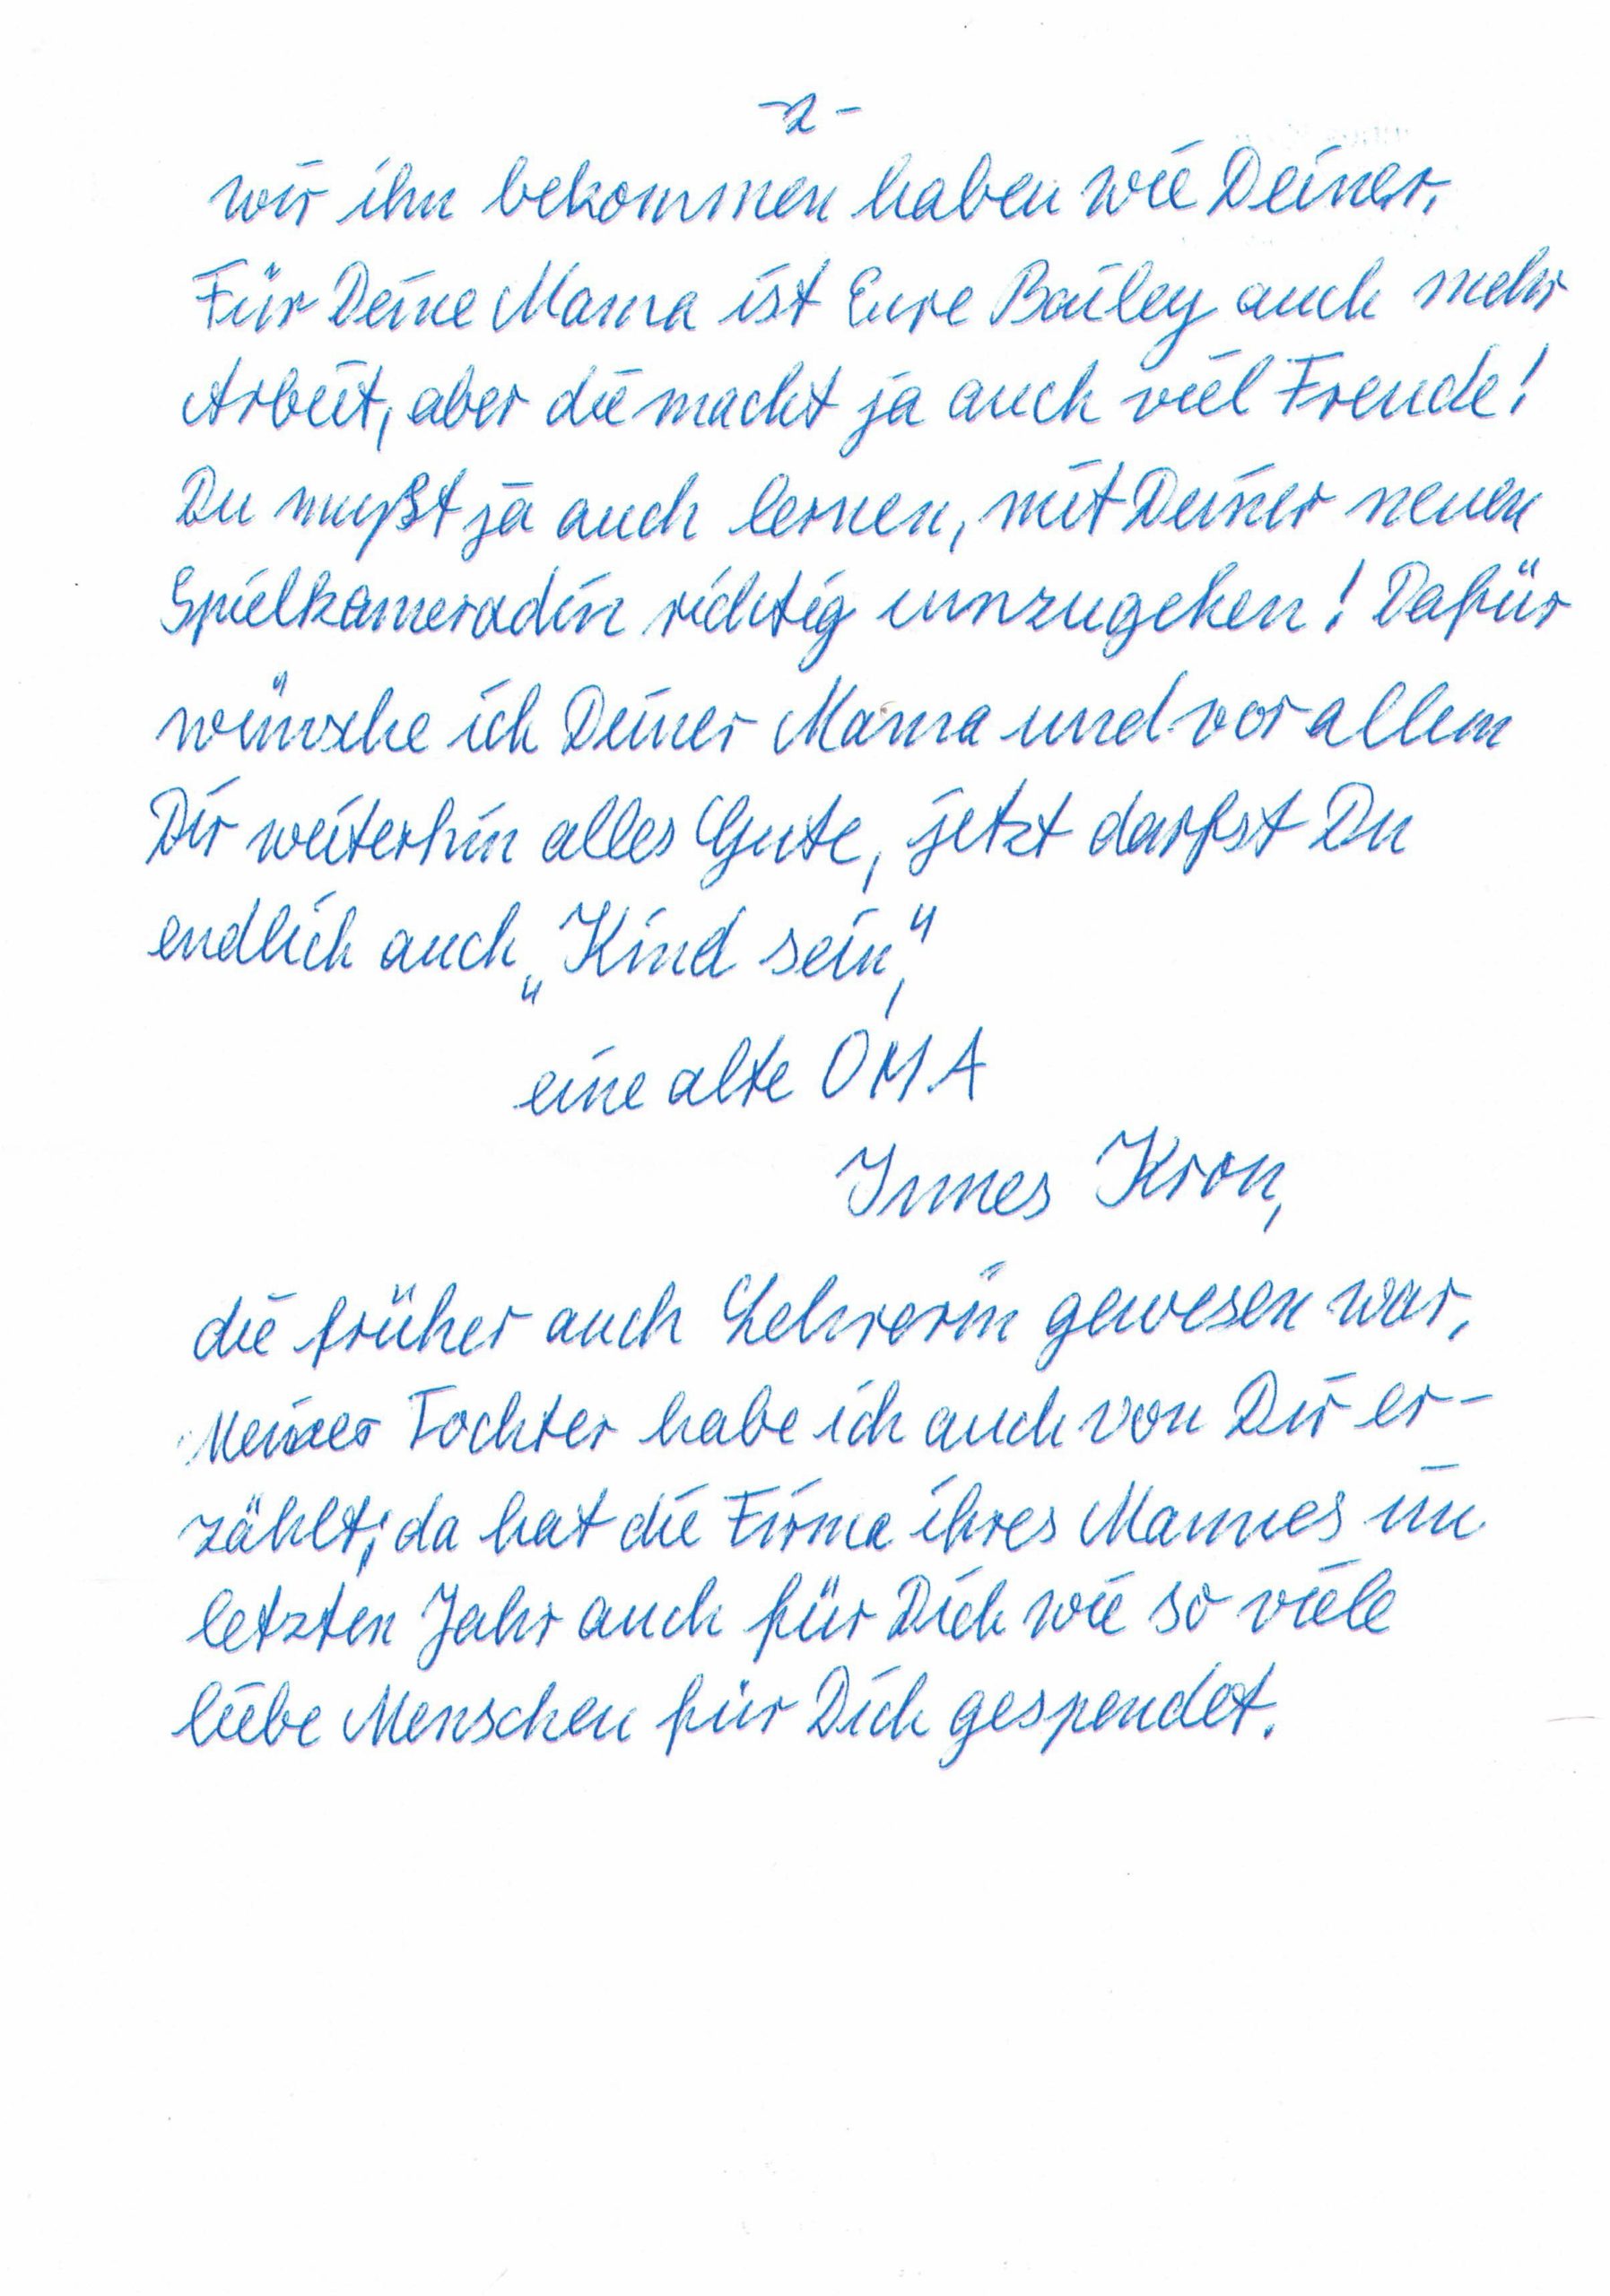 -2-
wir ihn bekommen haben wie Deiner.
Für Deine Mama ist Eure Bailey auch mehr
Arbeit, aber die macht ja auch viel Freude!
Du mußt ja auch lernen, mit Deiner neuen
Spielkameradin richtig umzugehen! Dafür
wünsche ich Deiner Mama und vor allem
Dir weiterhin alles Gute, jetzt darfst Du
endlich auch „Kind sein“,
eine alte OMA
Kron,
die früher auch Lehrerin gewesen war.
Meiner Tochter habe ich auch von Dir er-
zählt; da hat die Firma ihres Mannes im
letzten Jahr auch für Dich wie so viele
liebe Menschen für Dich gespendet.